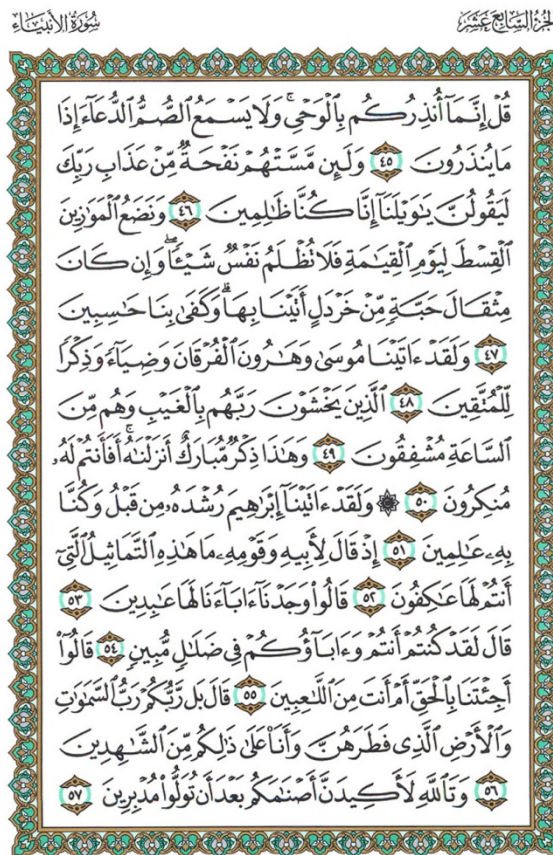 سُورَةُ الأَنبِيَاء
الجُزْءُ السَّابِعَ عَشَرَ
قُلْ إِنَّمَآ أُنذِرُكُم بِٱلْوَحْىِ ۚ وَلَا يَسْمَعُ ٱلصُّمُّ ٱلدُّعَآءَ إِذَا
مَا يُنذَرُونَ ٤٥ وَلَئِن مَّسَّتْهُمْ نَفْحَةٌ مِّنْ عَذَابِ رَبِّكَ
لَيَقُولُنَّ يَٰوَيْلَنَآ إِنَّا كُنَّا ظَٰلِمِينَ ٤٦ وَنَضَعُ ٱلْمَوَٰزِينَ
ٱلْقِسْطَ لِيَوْمِ ٱلْقِيَٰمَةِ فَلَا تُظْلَمُ نَفْسٌ شَيْـًٔا ۖ وَإِن كَانَ
مِثْقَالَ حَبَّةٍ مِّنْ خَرْدَلٍ أَتَيْنَا بِهَا ۗ وَكَفَىٰ بِنَا حَٰسِبِينَ
٤٧ وَلَقَدْ ءَاتَيْنَا مُوسَىٰ وَهَٰرُونَ ٱلْفُرْقَانَ وَضِيَآءً وَذِكْرًا
لِّلْمُتَّقِينَ ٤٨ ٱلَّذِينَ يَخْشَوْنَ رَبَّهُم بِٱلْغَيْبِ وَهُم مِّنَ
ٱلسَّاعَةِ مُشْفِقُونَ ٤٩ وَهَٰذَا ذِكْرٌ مُّبَارَكٌ أَنزَلْنَٰهُ ۚ أَفَأَنتُمْ لَهُۥ
مُنكِرُونَ ٥٠ ۞ وَلَقَدْ ءَاتَيْنَآ إِبْرَٰهِيمَ رُشْدَهُۥ مِن قَبْلُ وَكُنَّا
بِهِۦ عَٰلِمِينَ ٥١ إِذْ قَالَ لِأَبِيهِ وَقَوْمِهِۦ مَا هَٰذِهِ ٱلتَّمَاثِيلُ ٱلَّتِىٓ
أَنتُمْ لَهَا عَٰكِفُونَ ٥٢ قَالُوا۟ وَجَدْنَآ ءَابَآءَنَا لَهَا عَٰبِدِينَ ٥٣
قَالَ لَقَدْ كُنتُمْ أَنتُمْ وَءَابَآؤُكُمْ فِى ضَلَٰلٍ مُّبِينٍ ٥٤ قَالُوٓا۟
أَجِئْتَنَا بِٱلْحَقِّ أَمْ أَنتَ مِنَ ٱللَّٰعِبِينَ ٥٥ قَالَ بَل رَّبُّكُمْ رَبُّ ٱلسَّمَٰوَٰتِ
وَٱلْأَرْضِ ٱلَّذِى فَطَرَهُنَّ وَأَنَا۠ عَلَىٰ ذَٰلِكُم مِّنَ ٱلشَّٰهِدِينَ
٥٦ وَتَٱللَّهِ لَأَكِيدَنَّ أَصْنَٰمَكُم بَعْدَ أَن تُوَلُّوا۟ مُدْبِرِينَ ٥٧